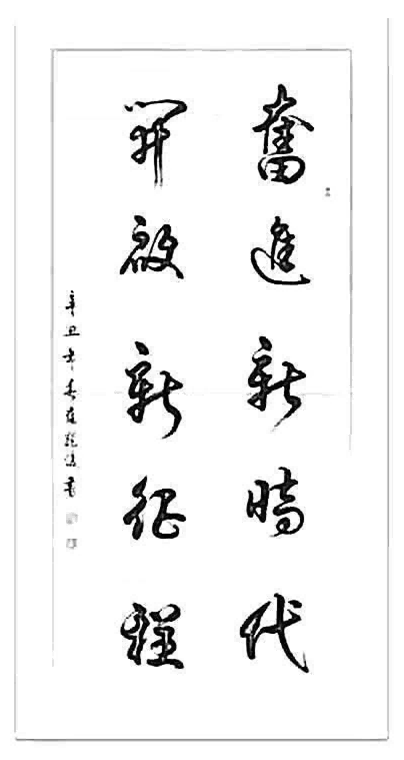 奮進新時代
開啟新征程
辛丑年春月
書